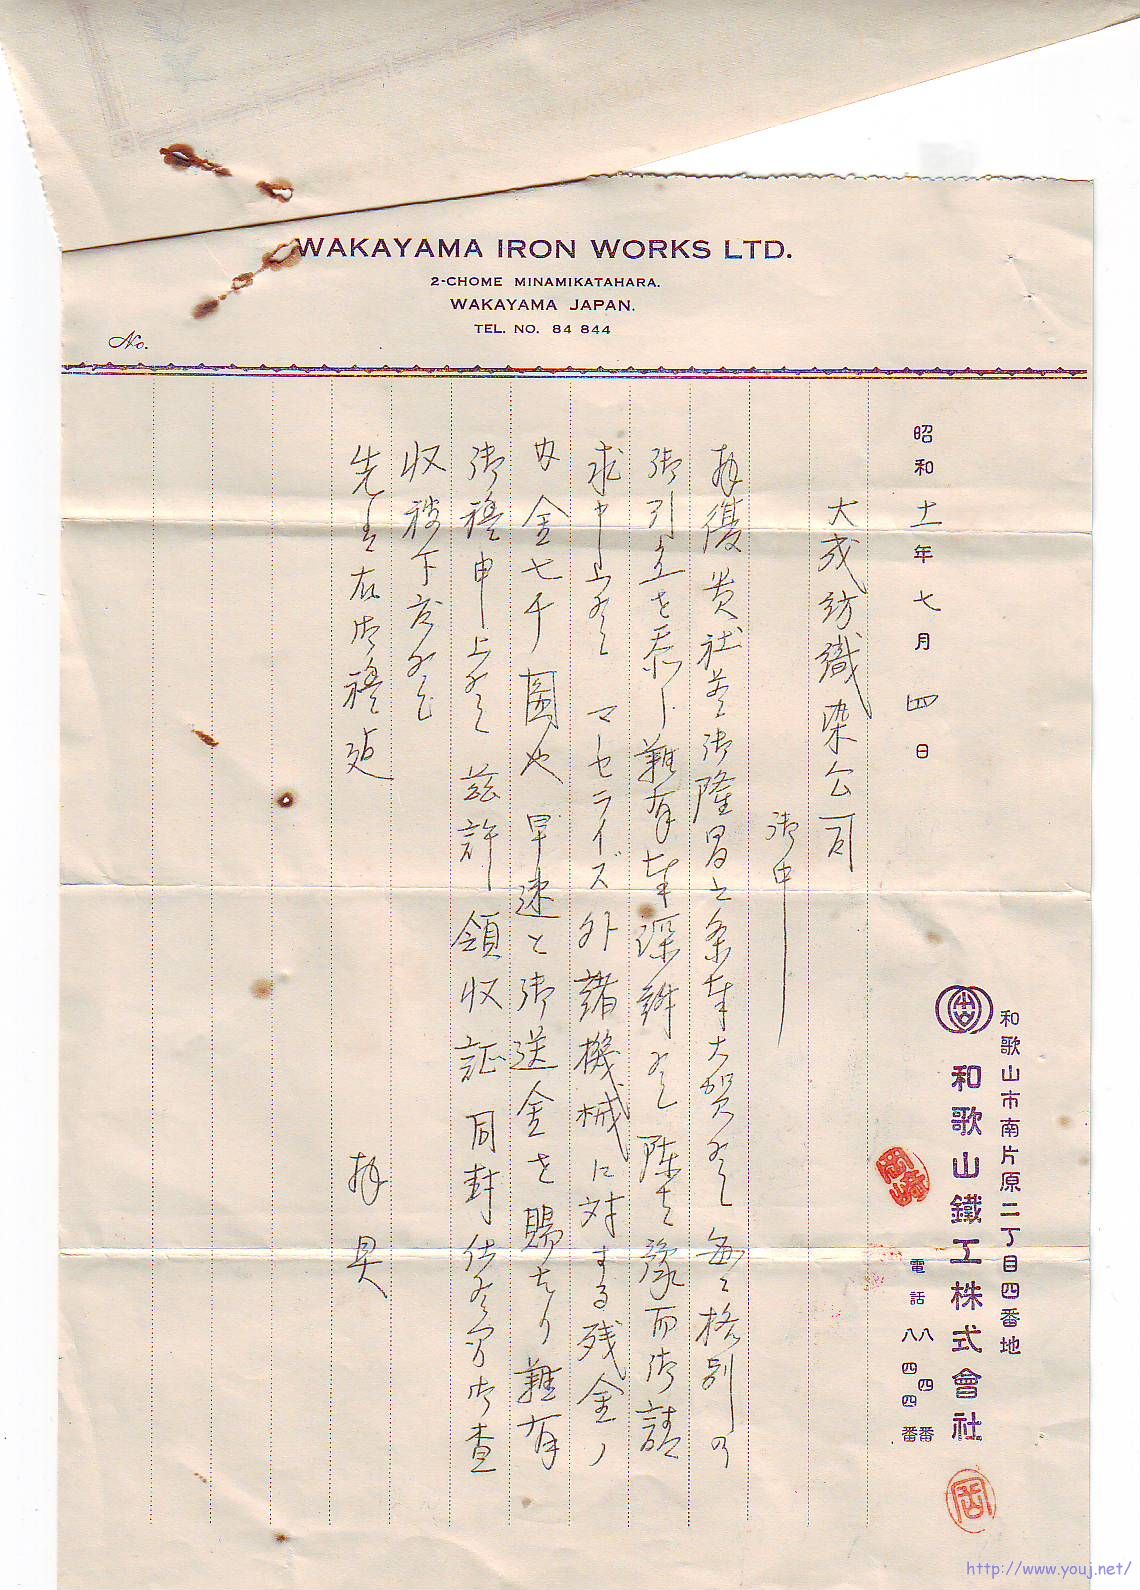 WAKAYAMA IRON WORKS LTD.
2-CHOME MINAMIKATAHARA.
WAKAYAMA JAPAN.
TEL. NO. 84 844
No.
和歌山市南片原二丁目四番地
和歌山鐵工株式會社
電話 八四番
八四四番
岡崎
岡
昭和十一年七月四日
大成紡織染公司
御中
拝復 貴社益御隆昌之条奉大賀候 毎々格別の
御引立を忝し難有奉深謝候 陳者豫而御請
求申上候 マセライズ外諸機械に対する残金ノ
内金七千圓也 早速と御送金を賜はり難有
御禮申上候 茲許領収証同封仕候間御査
収被下度候
先は右御禮迠
拝具
http://www.youj.net/